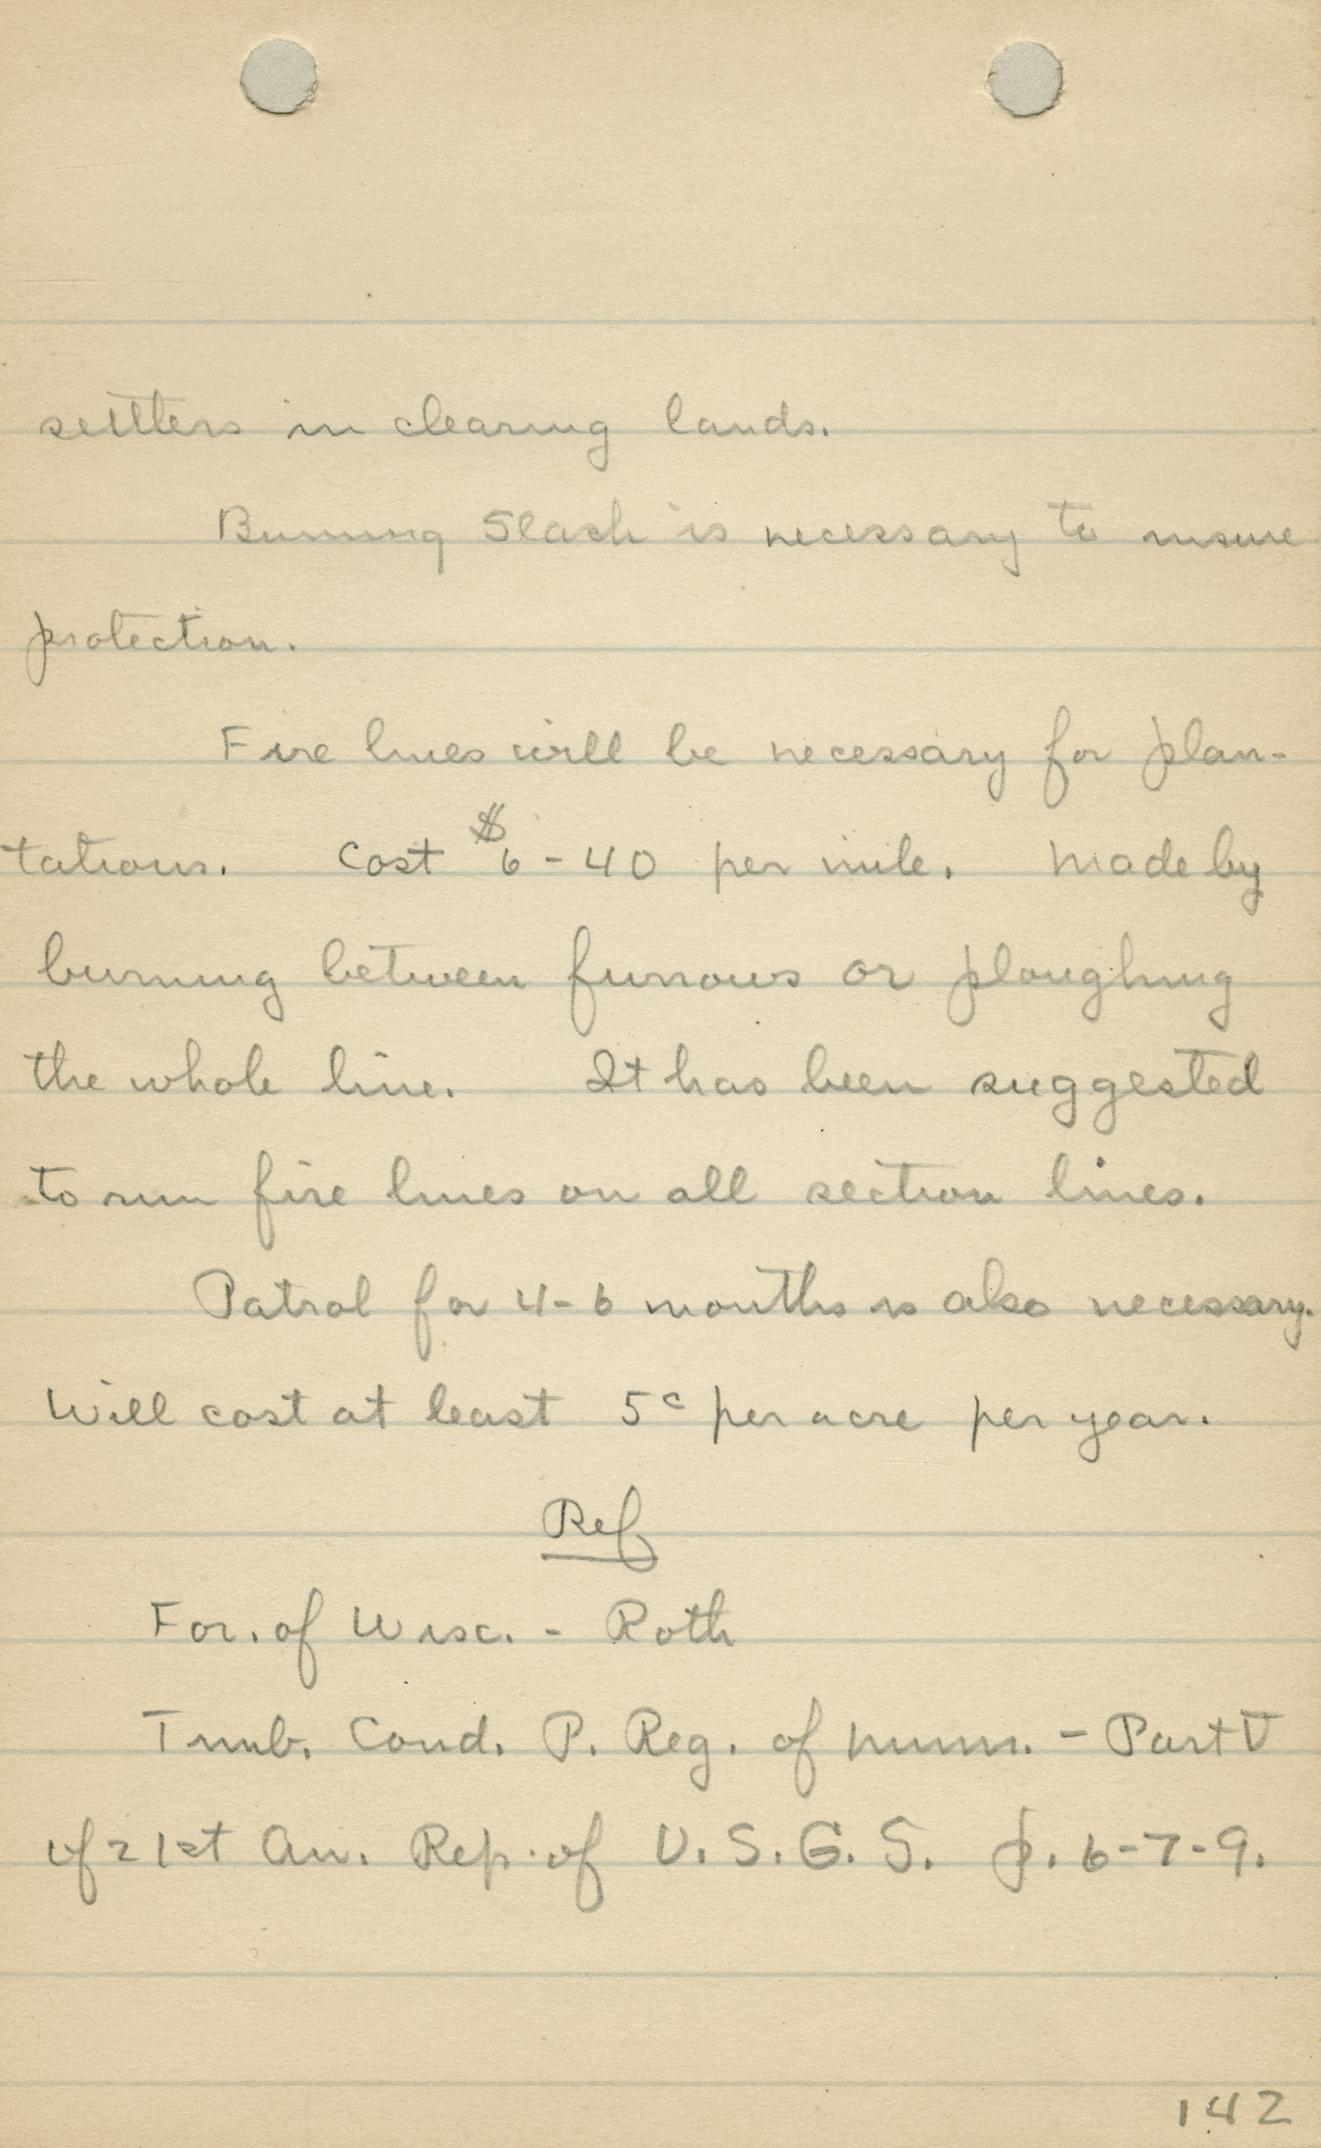 settlers in clearing lands.
Burning Slash is necessary to insure
protection.
Fire lines will be necessary for plan-
tations. Cost $6-40 per mile. Made by
burning between furrows or ploughing
the whole line. It has been suggested
to run fire lines on all section lines.
Patrol for 4-6 months is also necessary.
Will cost at least 5c per acre per year.
Ref
For. of Wisc. - Roth
Timb. Cond. P. Reg. of Minn. - Part V
of 21st An. Rep. of U.S.G.S. p. 6-7-9.
142